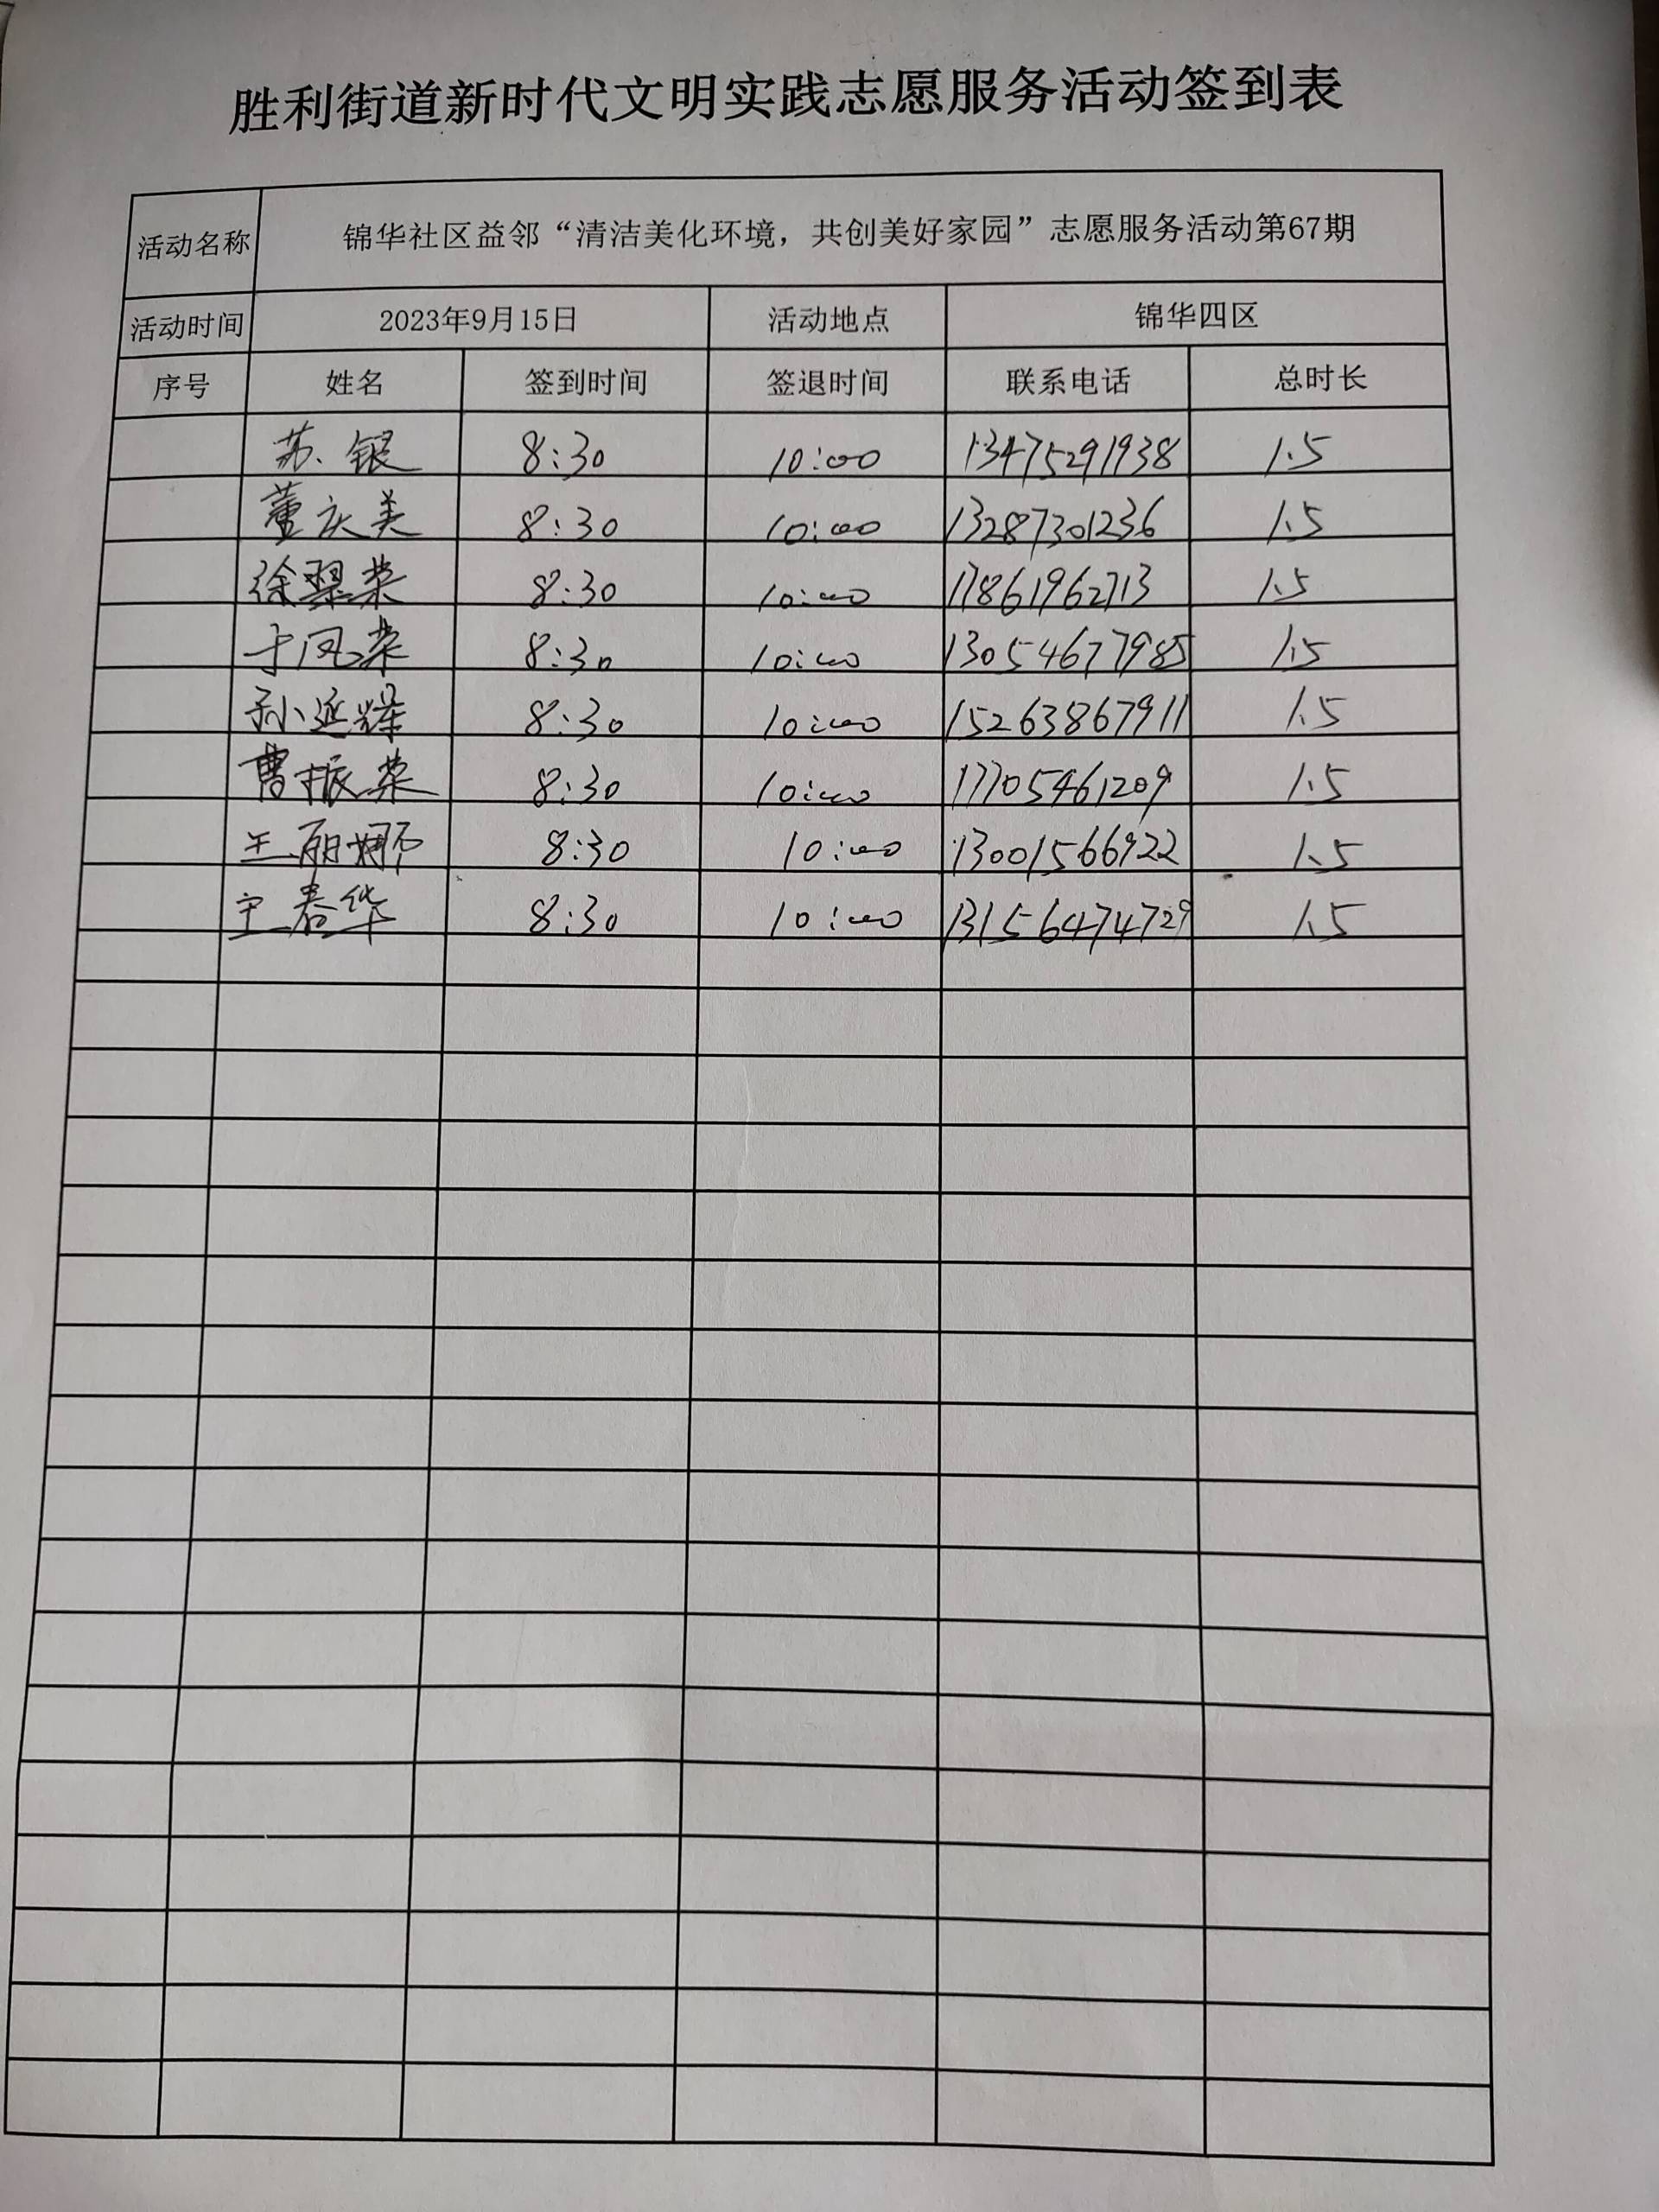 胜利街道新时代文明实践志愿服务活动签到表
活动名称 锦华社区益邻“清洁美化环境，共创美好家园”志愿服务活动第67期
活动时间 2023年9月15日 活动地点 锦华四区
序号 姓名 签到时间 签退时间 联系电话 总时长
苏银 8:30 10:00 13475291938 1.5
董庆美 8:30 10:00 13287301236 1.5
徐翠荣 8:30 10:00 17861962713 1.5
于凤荣 8:30 10:00 13054677985 1.5
孙延辉 8:30 10:00 15263867911 1.5
曹振荣 8:30 10:00 17705461209 1.5
王丽娜 8:30 10:00 13001566922 1.5
王春华 8:30 10:00 13156474729 1.5